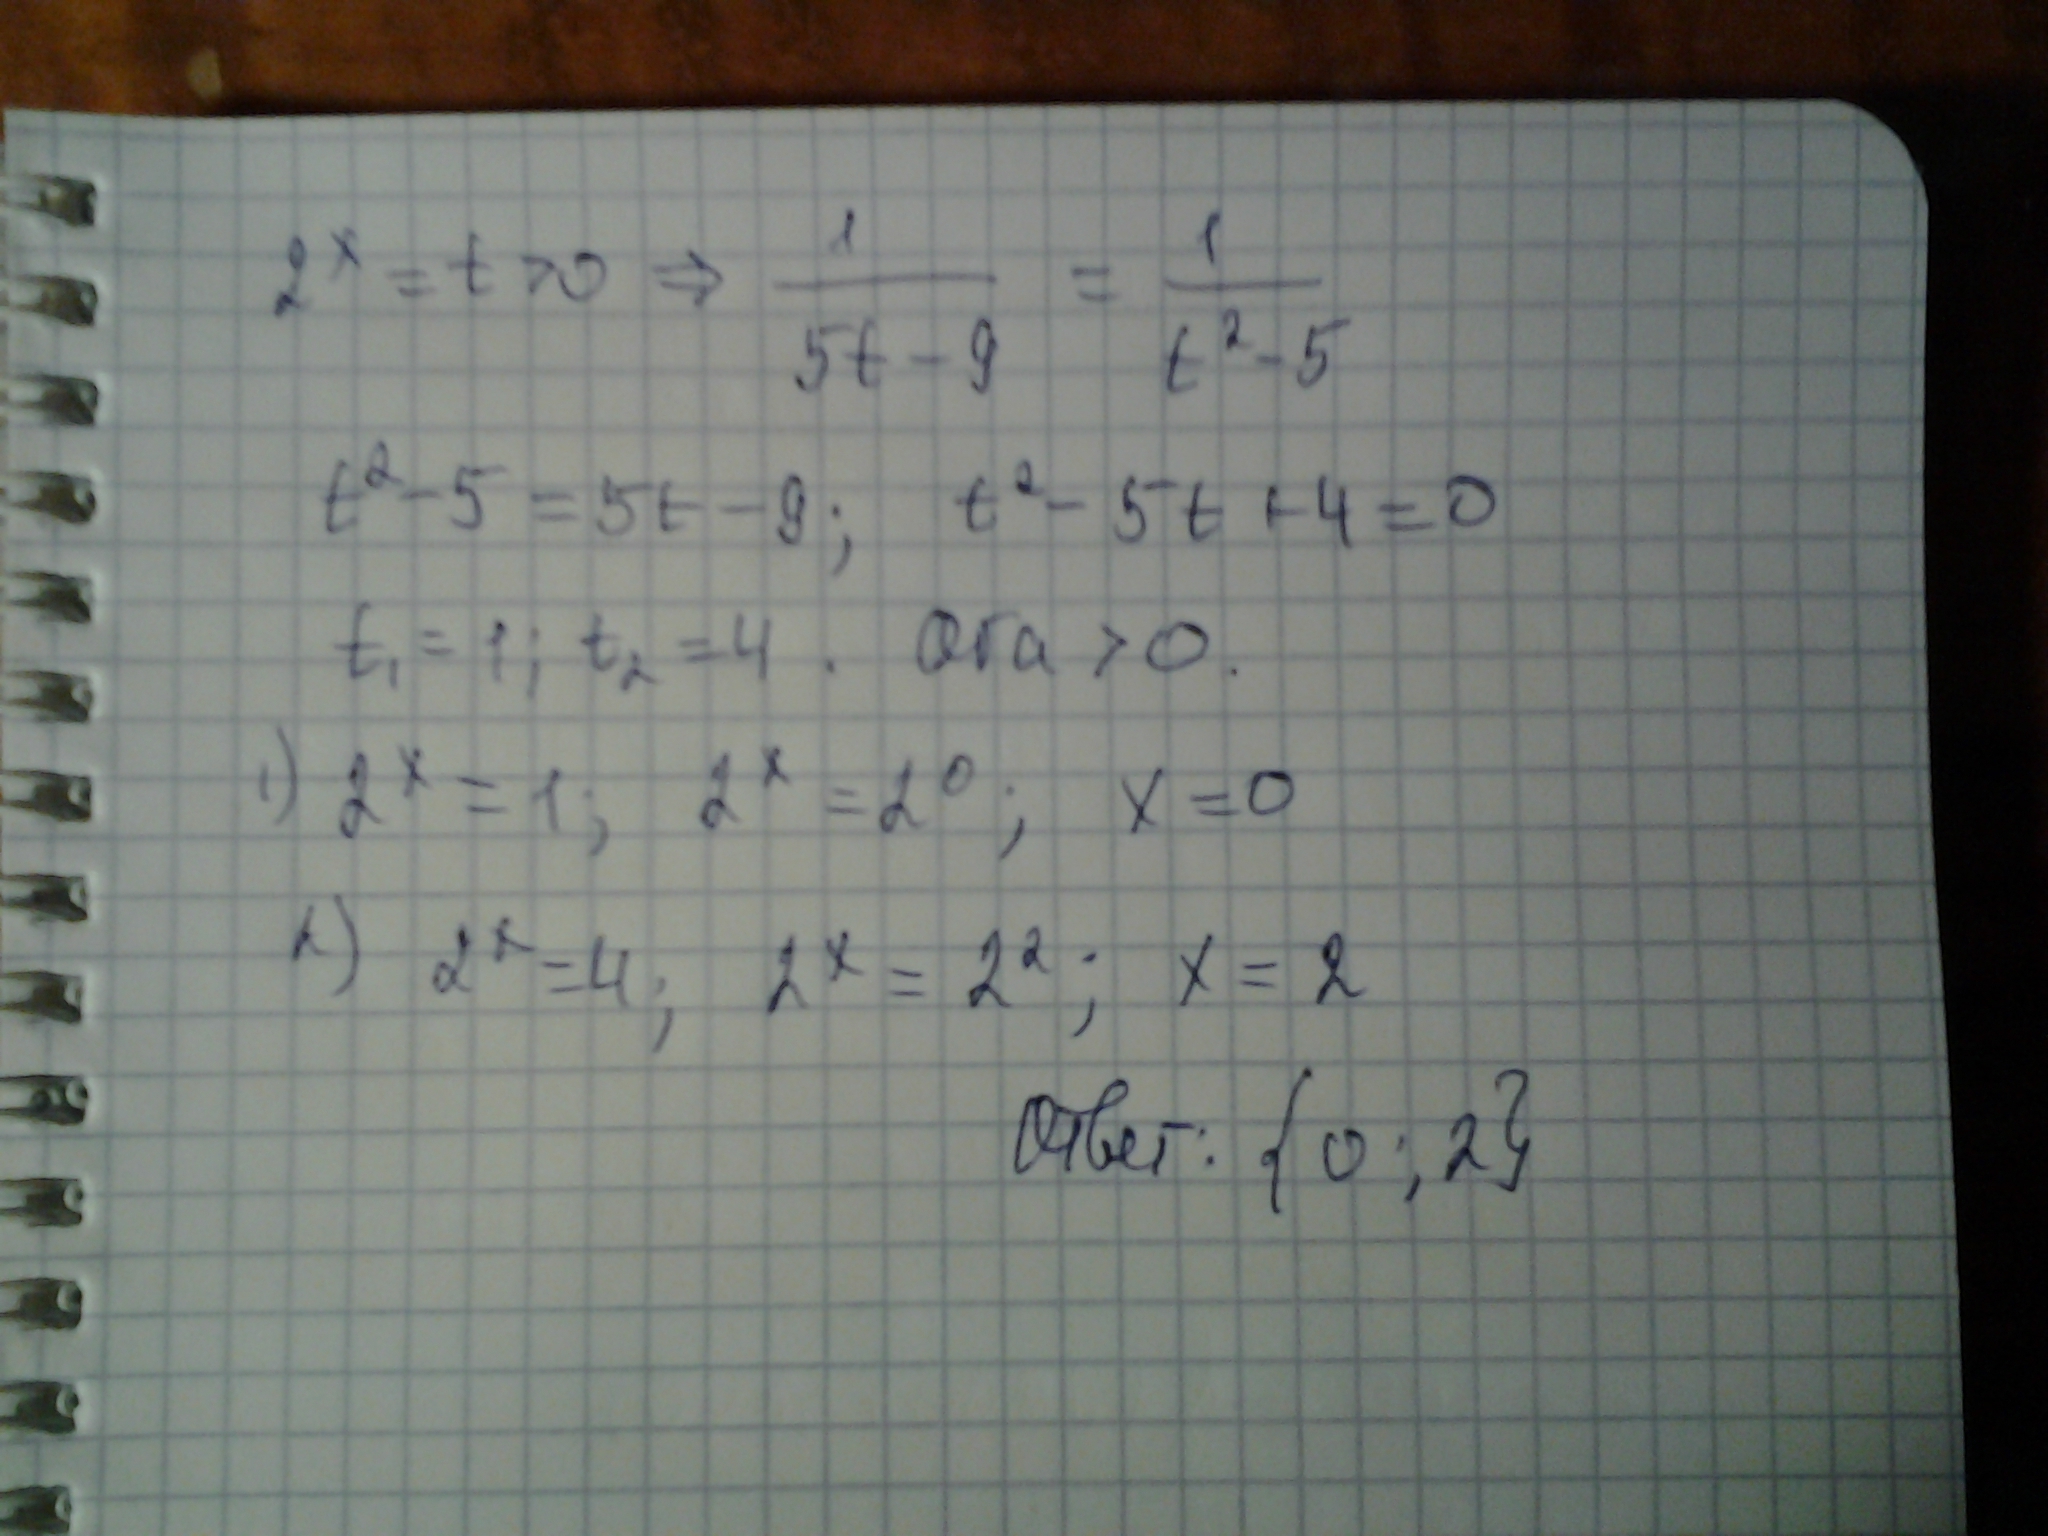 2ˣ = t > 0 ⇒ 1/(5t - 9) = 1/(t² - 5)
t² - 5 = 5t - 9; t² - 5t + 4 = 0
t₁ = 1; t₂ = 4. Оба > 0.
1) 2ˣ = 1; 2ˣ = 2⁰; x = 0
2) 2ˣ = 4; 2ˣ = 2²; x = 2
Ответ: {0; 2}